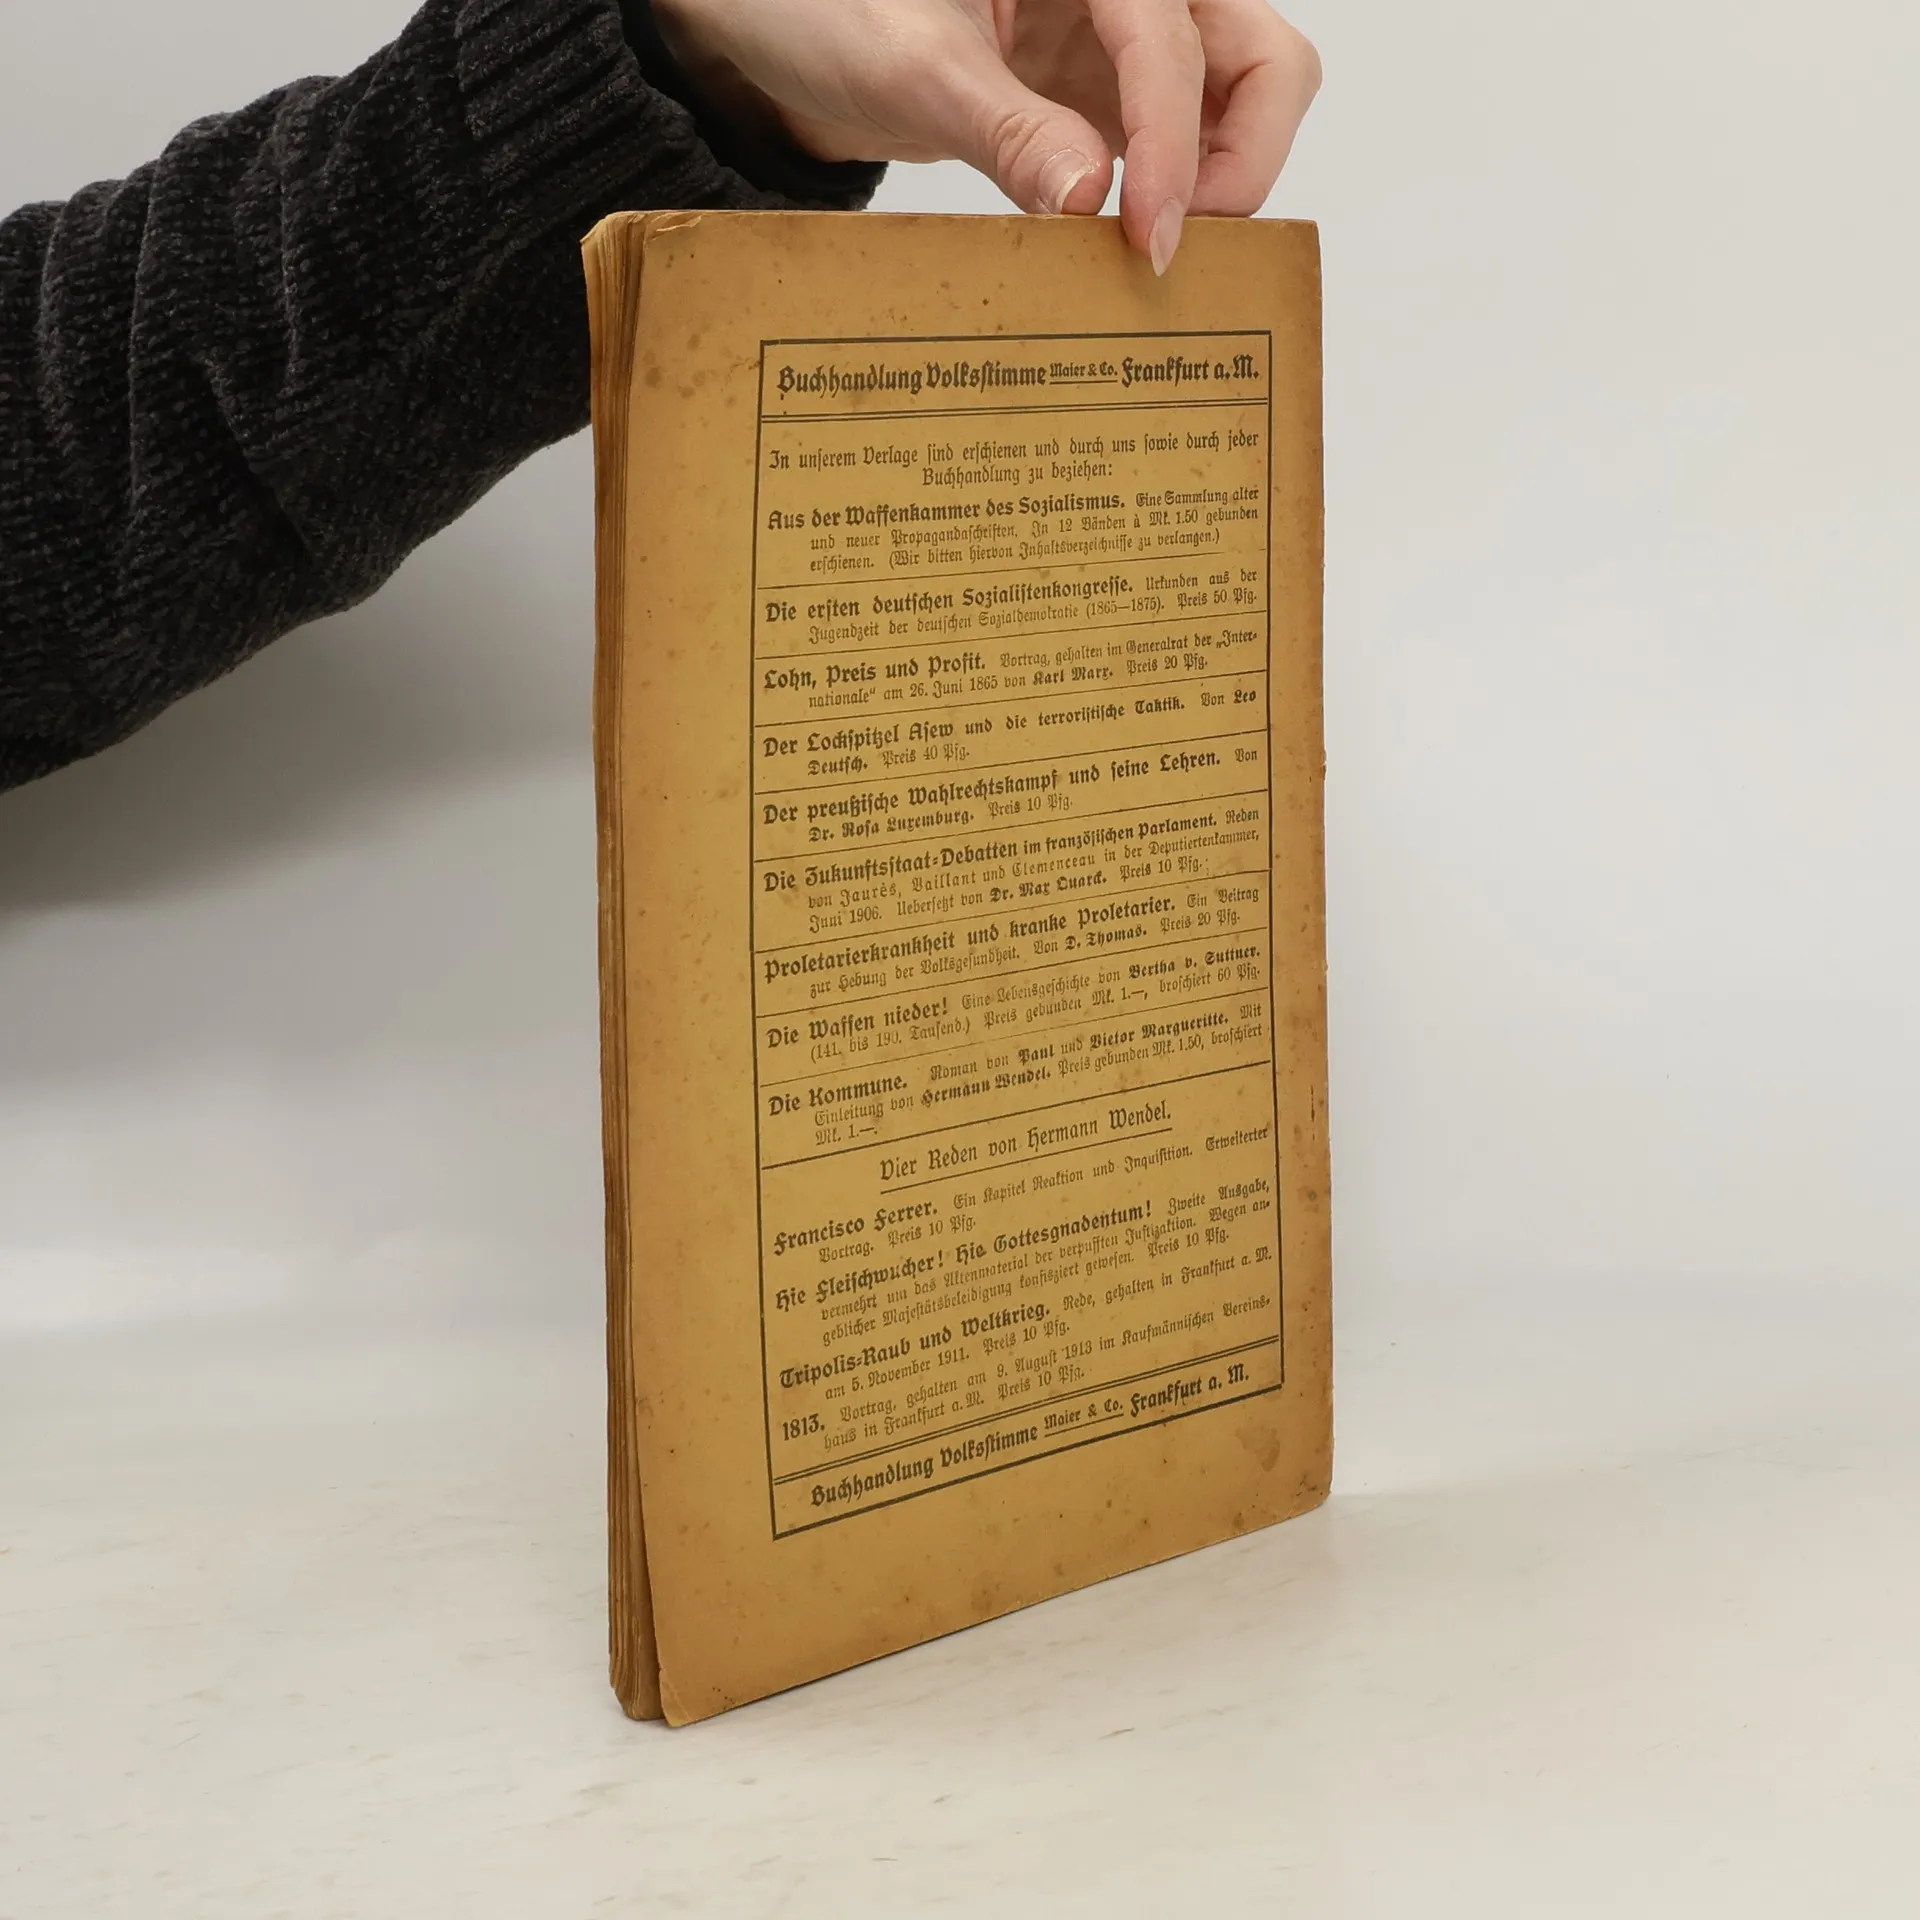 Buchhandlung Volksstimme Maier & Co. Frankfurt a. M.
In unserem Verlage sind erschienen und durch uns sowie durch jeder
Buchhandlung zu beziehen:
Aus der Waffenkammer des Sozialismus. Eine Sammlung alter
und neuer Propagandaschriften. In 12 Bänden à Mk. 1.50 gebunden
erschienen. (Wir bitten hiervon Inhaltsverzeichnisse zu verlangen.)
Die ersten deutschen Sozialistenkongresse. Urkunden aus der
Jugendzeit der deutschen Sozialdemokratie (1865—1875). Preis 50 Pfg.
Lohn, Preis und Profit. Vortrag, gehalten im Generalrat der „Inter-
nationale“ am 26. Juni 1865 von Karl Marx. Preis 20 Pfg.
Der Lockspitzel Asew und die terroristische Taktik. Von Leo
Deutsch. Preis 40 Pfg.
Der preußische Wahlrechtskampf und seine Lehren. Von
Dr. Rosa Luxemburg. Preis 10 Pfg.
Die Zukunftsstaat-Debatten im französischen Parlament. Reden
von Jaurès, Vaillant und Clemenceau in der Deputiertenkammer,
Juni 1906. Uebersetzt von Dr. Max Quarck. Preis 10 Pfg.
Proletarierkrankheit und kranke Proletarier. Ein Beitrag
zur Hebung der Volksgesundheit. Von D. Thomas. Preis 20 Pfg.
Die Waffen nieder! Eine Lebensgeschichte von Bertha v. Suttner.
(141. bis 190. Tausend.) Preis gebunden Mk. 1.—, broschiert 60 Pfg.
Die Kommune. Roman von Paul und Victor Margueritte. Mit
Einleitung von Hermann Wendel. Preis gebunden Mk. 1.50, broschiert
Mk. 1.—.
Vier Reden von Hermann Wendel.
Francisco Ferrer. Ein Kapitel Reaktion und Inquisition. Erweiterter
Vortrag. Preis 10 Pfg.
Hie Fleischwucher! Hie Gottesgnadentum! Zweite Ausgabe,
vermehrt um das Aktenmaterial der verpufften Justizaktion. Wegen an-
geblicher Majestätsbeleidigung konfisziert gewesen. Preis 10 Pfg.
Tripolis-Raub und Weltkrieg. Rede, gehalten in Frankfurt a. M.
am 5. November 1911. Preis 10 Pfg.
1813. Vortrag, gehalten am 9. August 1913 im Kaufmännischen Vereins-
haus in Frankfurt a. M. Preis 10 Pfg.
Buchhandlung Volksstimme Maier & Co. Frankfurt a. M.